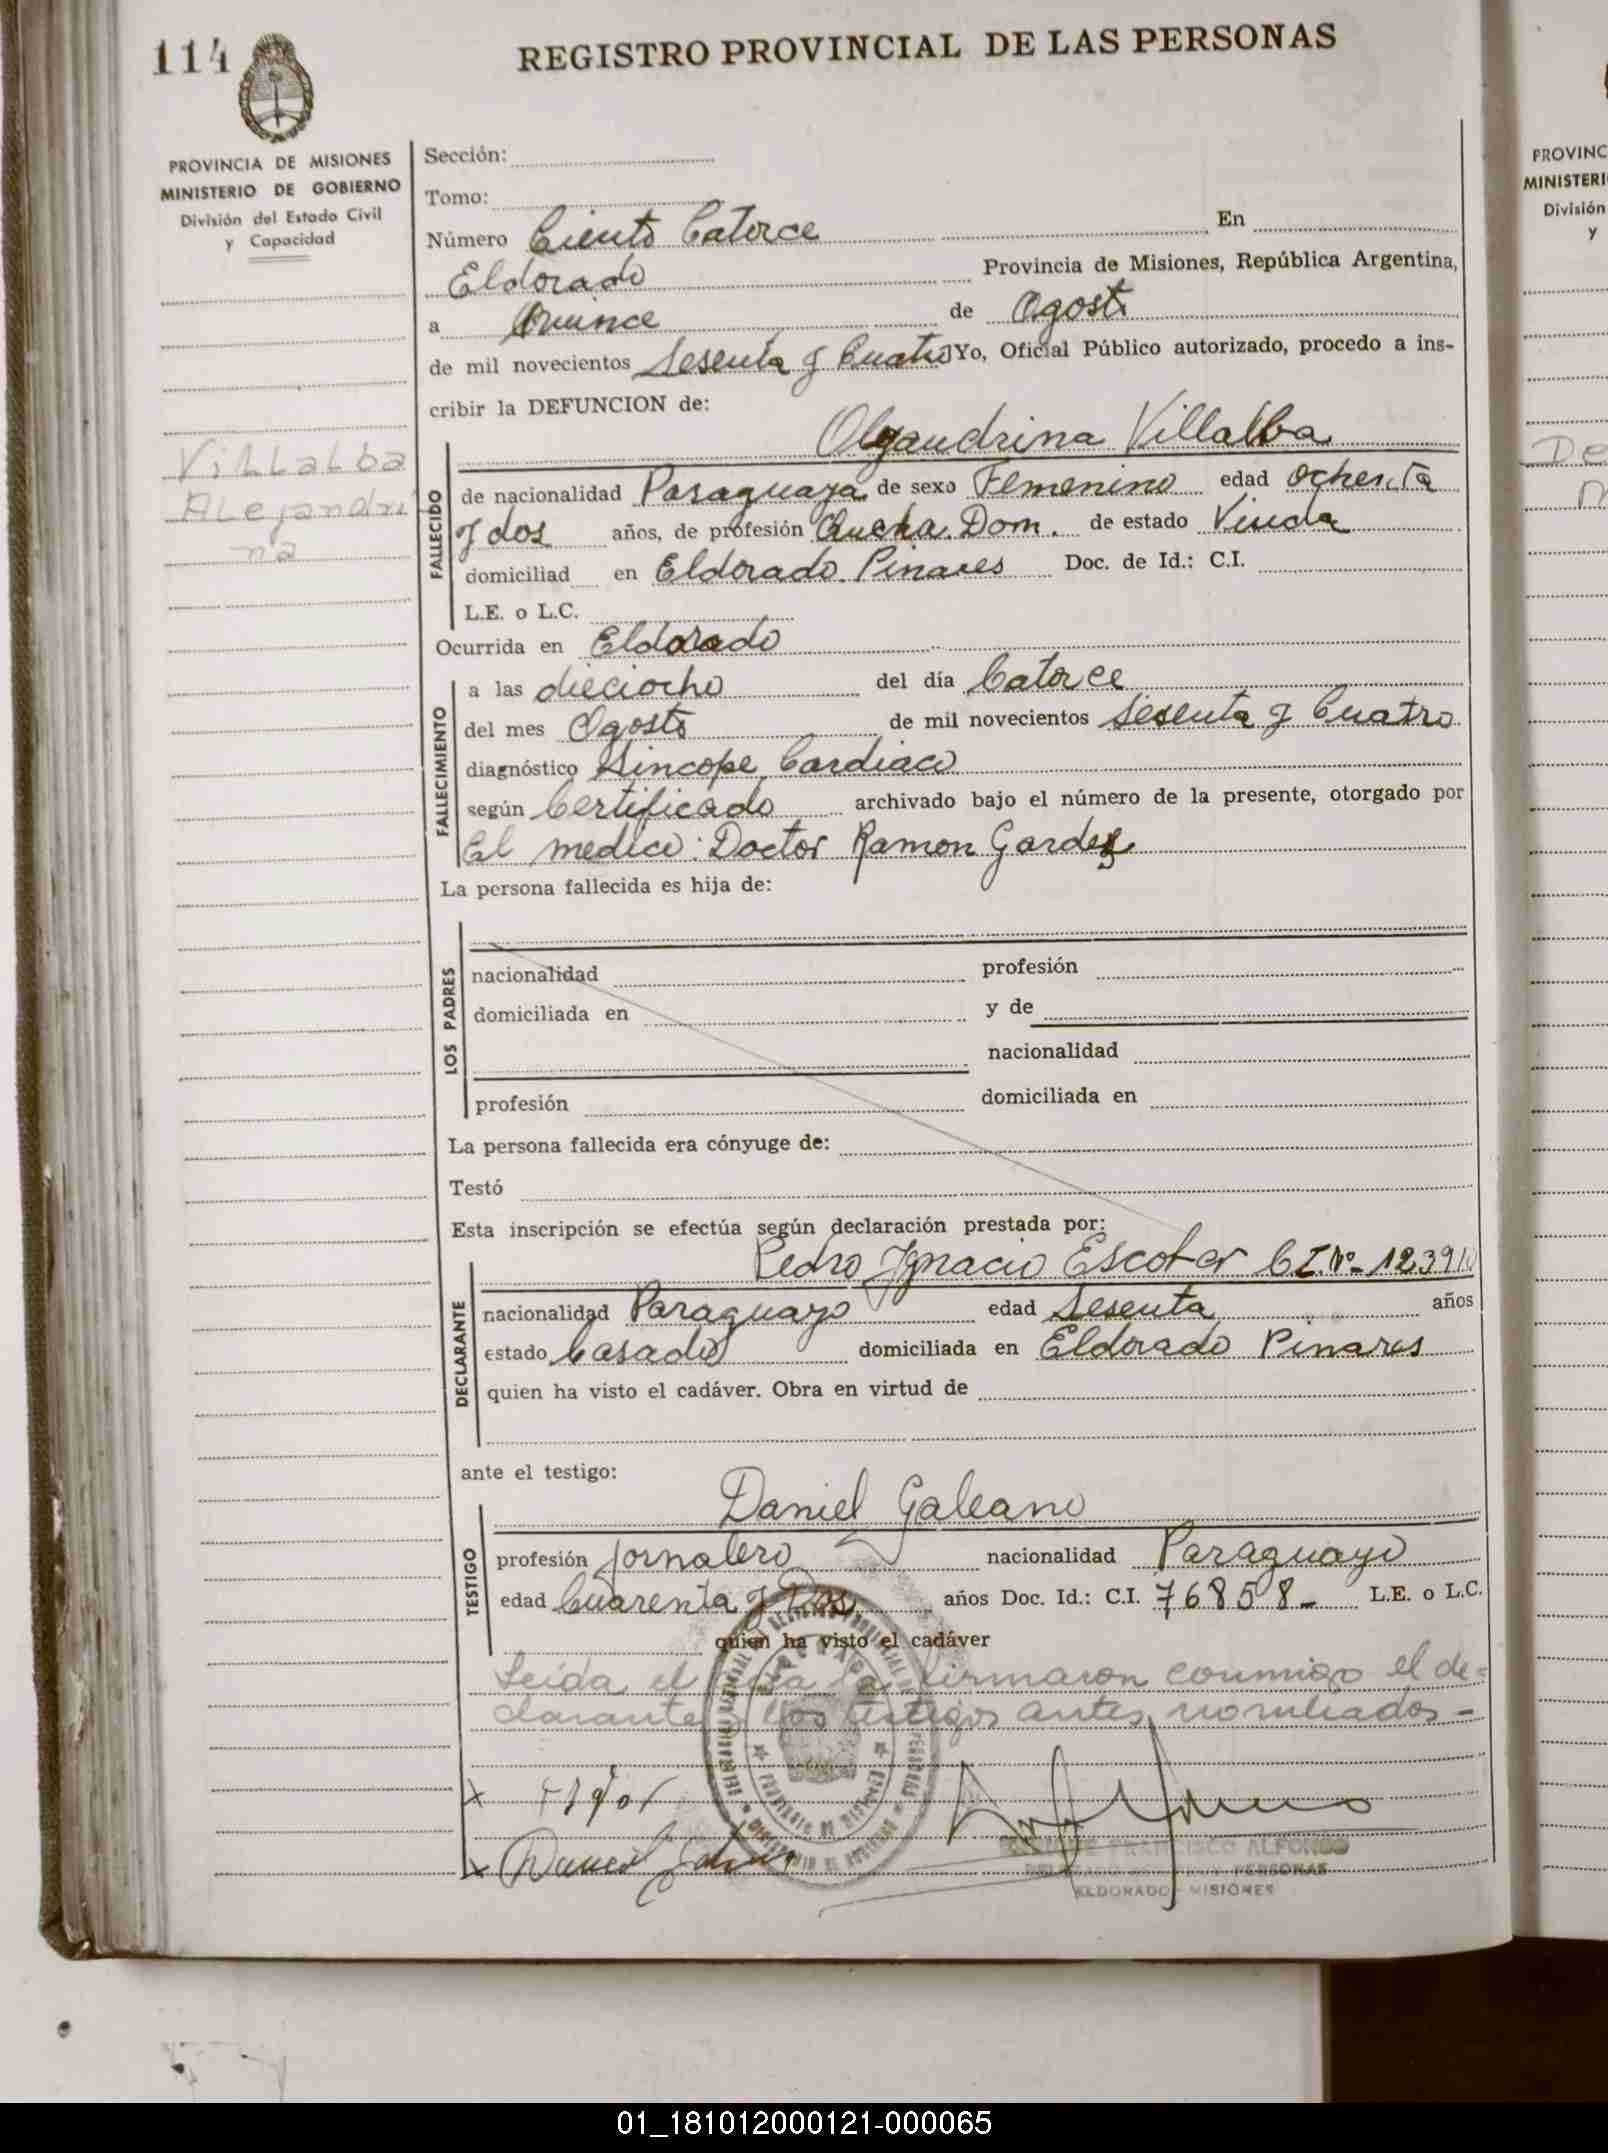 114
REGISTRO PROVINCIAL DE LAS PERSONAS
PROVINCIA DE MISIONES
MINISTERIO DE GOBIERNO
División del Estado Civil
y Capacidad
Villalba
Alejandri
na
Sección:
Tomo:
Número Ciento Catorce En
Eldorado Provincia de Misiones, República Argentina,
a Quince de Agosto
de mil novecientos Sesenta y Cuatro Yo, Oficial Público autorizado, procedo a ins-
cribir la DEFUNCION de:
Villalba
FALLECIDO
de nacionalidad Paraguaya de sexo Femenino edad ochenta
y dos años, de profesión Dom. de estado Viuda
domiciliad en Eldorado Pinares Doc. de Id.: C.I.
L.E. o L.C.
Ocurrida en Eldorado
FALLECIMIENTO
a las dieciocho del día Catorce
del mes Agosto de mil novecientos Sesenta y Cuatro
diagnóstico Sincope Cardiaco
según Certificado archivado bajo el número de la presente, otorgado por
El medico: Doctor Ramon Gardes
La persona fallecida es hija de:
LOS PADRES
nacionalidad profesión
domiciliada en y de
nacionalidad
profesión domiciliada en
La persona fallecida era cónyuge de:
Testó
Esta inscripción se efectúa según declaración prestada por:
Pedro Ignacio Escobar C.I.Nº- 123910
DECLARANTE
nacionalidad Paraguayo edad Sesenta años
estado Casado domiciliada en Eldorado Pinares
quien ha visto el cadáver. Obra en virtud de
ante el testigo:
Daniel Galeano
TESTIGO
profesión Jornalero nacionalidad Paraguayo
edad Cuarenta y Dos años Doc. Id.: C.I. 76858- L.E. o L.C.
quien ha visto el cadáver
Leida el firmaron conmigo el de=
clarante testigos antes nombrados-
FRANCISCO ALFONSO
PERSONAS
ELDORADO - MISIONES
PROVINC
MINISTERI
División
y
De
01_181012000121-000065